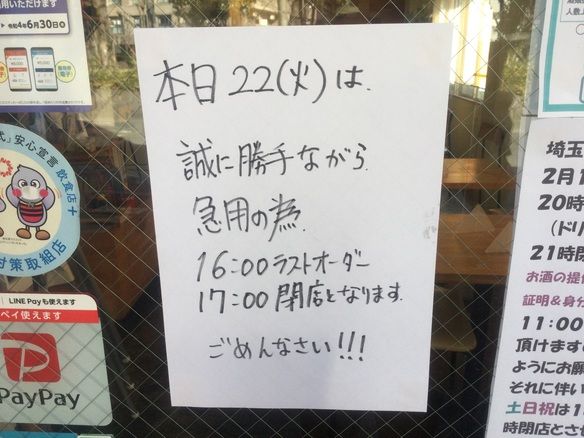 本日22(火)は
誠に勝手ながら
急用の為
16:00ラストオーダー
17:00閉店となります
ごめんなさい!!!
令和4年6月30日
安心宣言 飲食店+
対策取組店
LINE Payも使えます
ペイ使えます
PayPay
埼玉
2月1
20時
(ドリ
21時閉
お酒の提
証明&身分
11:00
頂けますの
ようにお願
それに伴い
土日祝は1
時閉店とさ